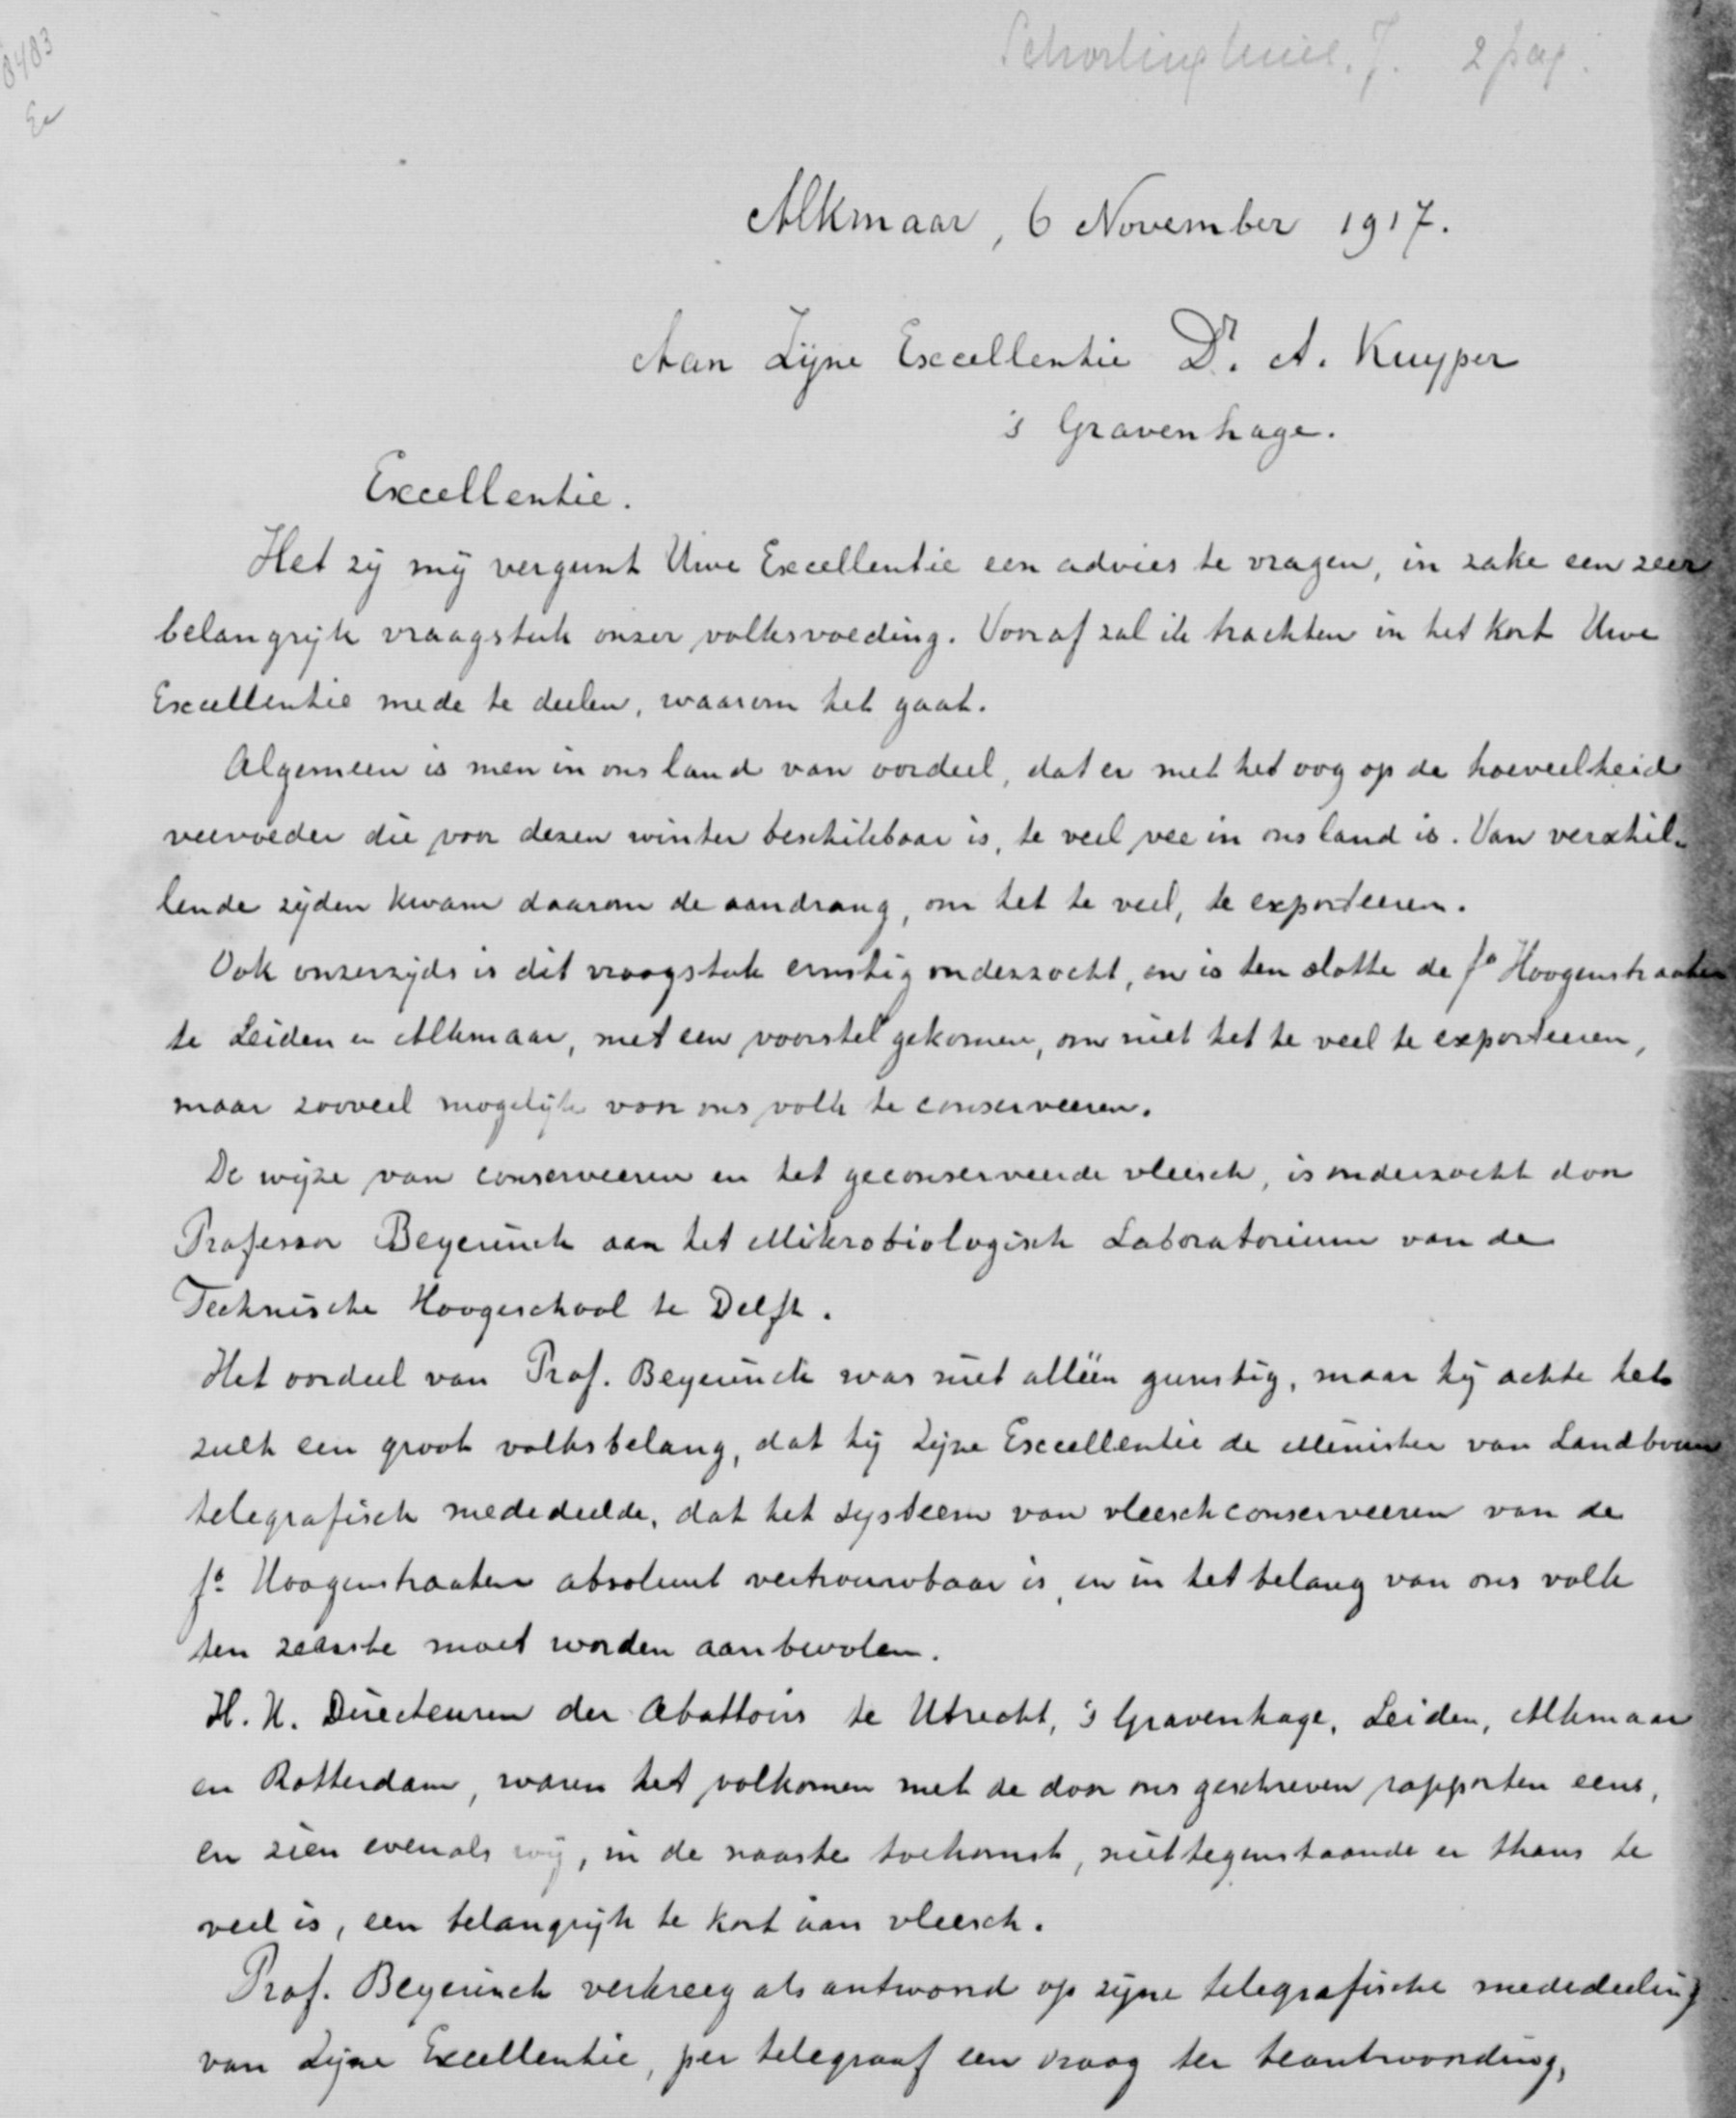 8483
Schortinghuis, J. 2 pag.
Alkmaar, 6 November 1917.
Aan Zijne Excellentie Dr. A. Kuyper
's Gravenhage.
Excellentie.
Het zij mij vergunt Uwe Excellentie een advies te vragen, in zake een zeer
belangrijk vraagstuk onzer volksvoeding. Vooraf zal ik trachten in het kort Uwe
Excellentie mede te deelen, waarom het gaat.
Algemeen is men in ons land van oordeel, dat er met het oog op de hoeveelheid
veevoeder die voor dezen winter beschikbaar is, te veel vee in ons land is. Van verschil-
lende zijden kwam daarom de aandrang, om het te veel, te exporteeren.
Ook onzerzijds is dit vraagstuk ernstig onderzocht, en is ten slotte de fa Hoogenstraaten
te Leiden en Alkmaar, met een voorstel gekomen, om niet het te veel te exporteeren,
maar zooveel mogelijk voor ons volk te conserveeren.
De wijze van conserveeren en het geconserveerde vleesch, is onderzocht door
Professor Beyerinck aan het Mikrobiologisch Laboratorium van de
Technische Hoogeschool te Delft.
Het oordeel van Prof. Beyerinck was niet alléén gunstig, maar hij achte het
zulk een groot volksbelang, dat hij Zijne Excellentie de Minister van Landbouw
telegrafisch mededeelde, dat het systeem van vleeschconserveeren van de
fa Hoogenstraaten absoluut vertrouwbaar is, en in het belang van ons volk
ten zeerste moet worden aanbevolen.
H. H. Directeuren der Abattoirs te Utrecht, 's Gravenhage, Leiden, Alkmaar
en Rotterdam, waren het volkomen met de door ons geschreven rapporten eens,
en zien evenals wij, in de naaste toekomst, niettegenstaande er thans te
veel is, een belangrijk te kort aan vleesch.
Prof. Beyerinck verkreeg als antwoord op zijne telegrafische mededeeling
van Zijne Excellentie, per telegraaf een vraag ter beantwoording,